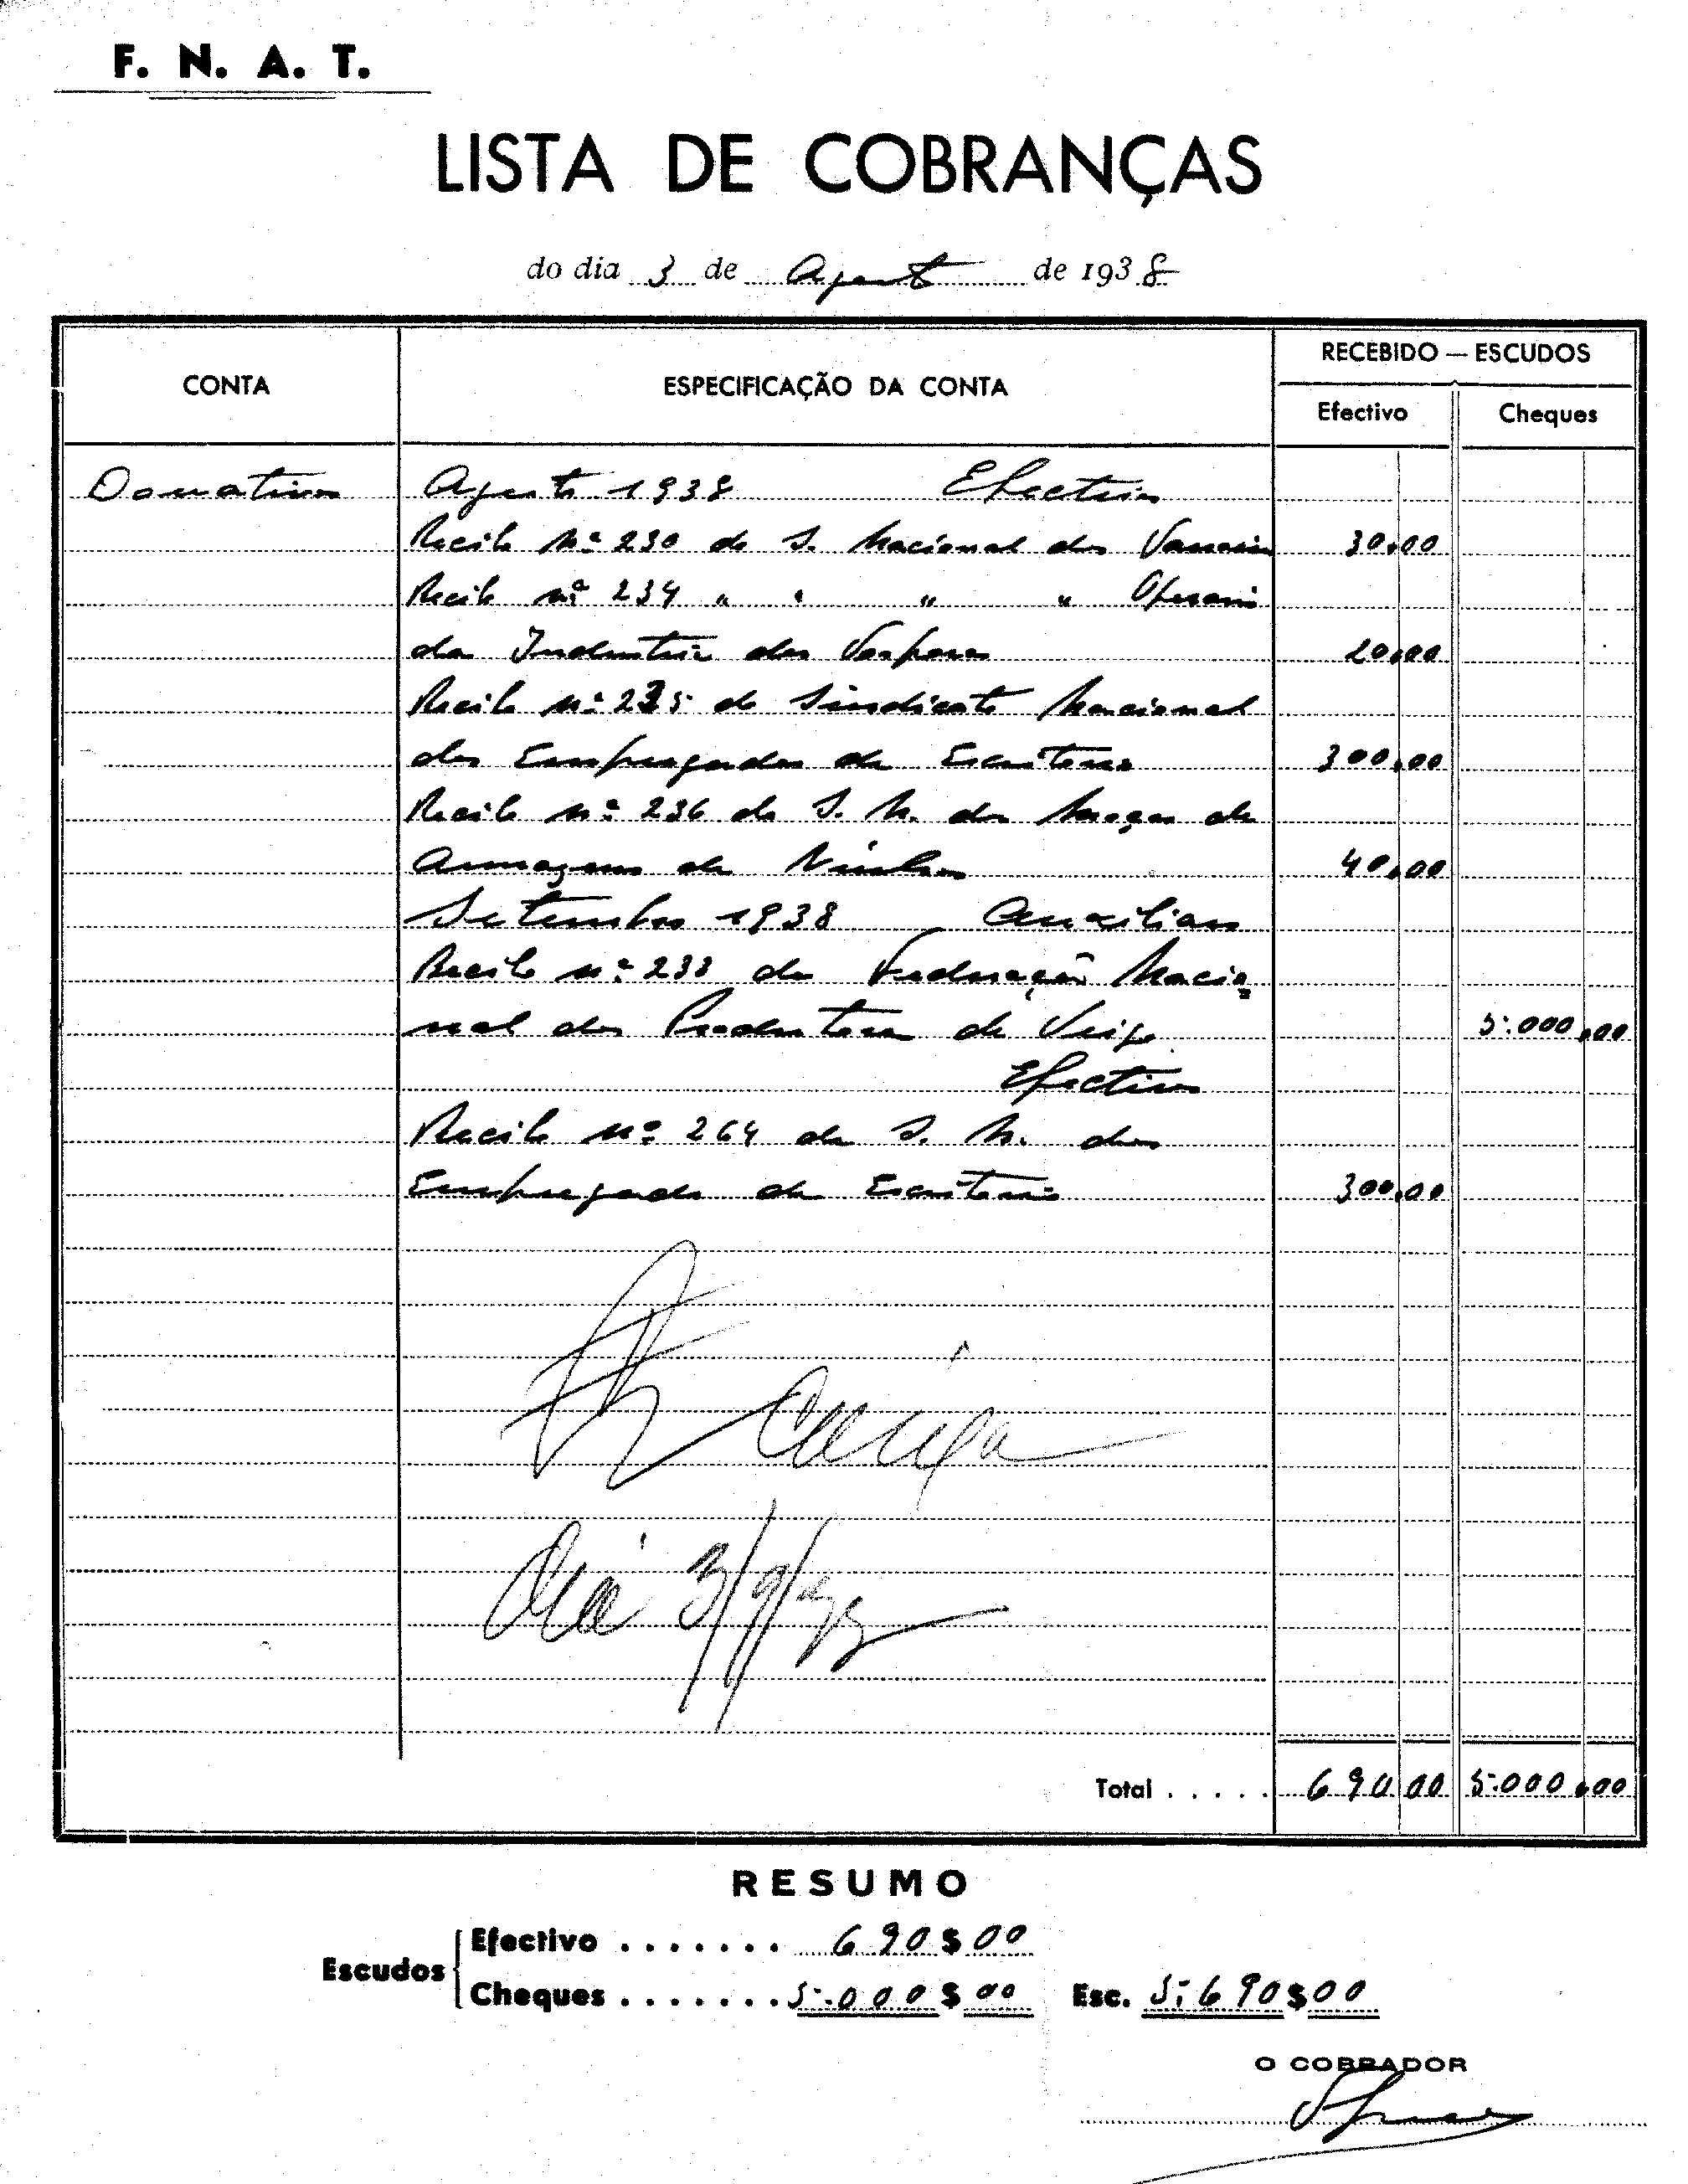 F. N. A. T.
LISTA DE COBRANÇAS
do dia 3 de Agosto de 1938
CONTA ESPECIFICAÇÃO DA CONTA RECEBIDO — ESCUDOS
Efectivo Cheques
Donativos Agosto 1938 Efectivos
Recibo nº 230 do S. Nacional dos 30,00
Recibo nº 234 " " " " Operarios
da Industria dos 20,00
Recibo nº 235 do Sindicato Nacional
dos Empregados de Escritorio 300,00
Recibo nº 236 do S. N. dos Moços de
Armazens de Vinhos 40,00
Setembro 1938 Auxiliares
Recibo nº 233 da Federação Nacio
nal dos Produtores de Trigo 5.000,00
Efectivos
Recibo nº 264 do S. N. dos
Empregados de Escritorio 300,00
Caixa
Dia 3/9/38
Total . . . . . 690,00 5.000,00
RESUMO
Escudos Efectivo . . . . . . . 690$00
Cheques . . . . . . . 5.000$00 Esc. 5.690$00
O COBRADOR